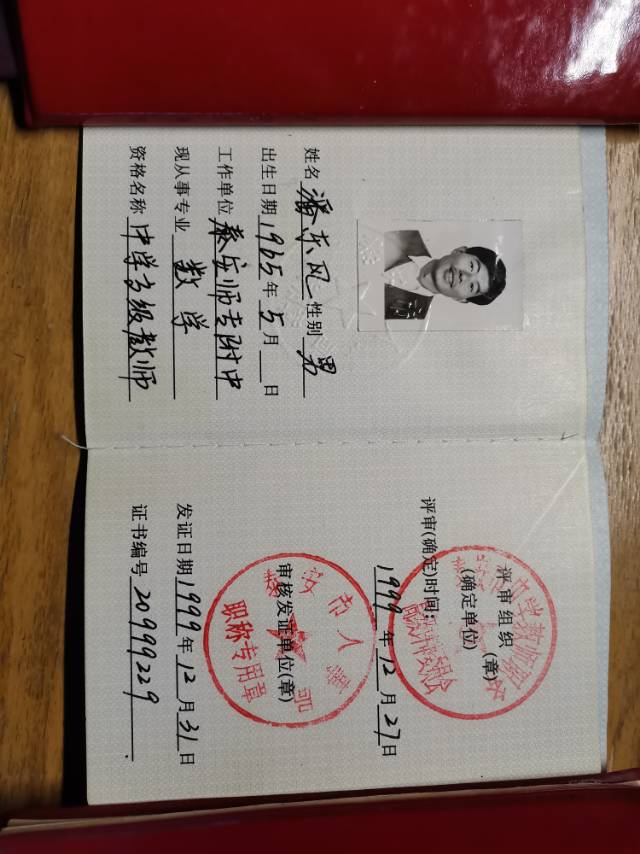 姓名 潘东风 性别 男
出生日期 1965年5月 日
工作单位 泰安师专附中
现从事专业 数学
资格名称 中学高级教师
评审组织
(确定单位) (章)
评审(确定)时间:
1999年12月27日
审核发证单位(章)
职称专用章
发证日期 1999年12月31日
证书编号 20999229